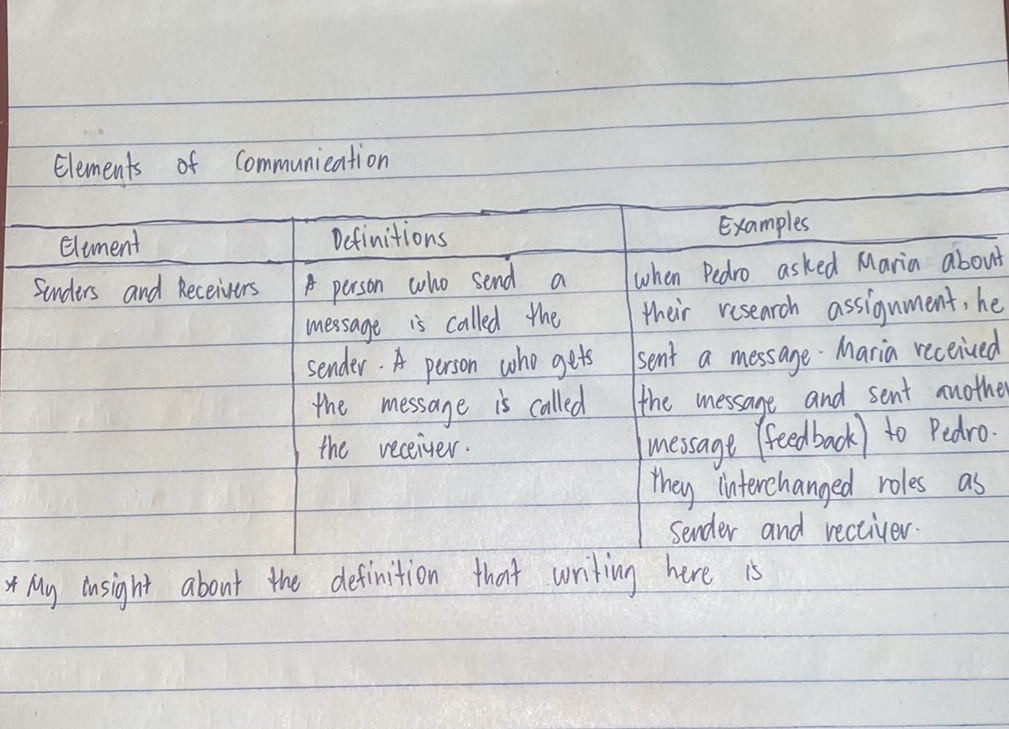 Elements of Communication
Element
Definitions
Examples
Senders and Receivers
A person who send a
message is called the
sender. A person who gets
the message is called
the receiver.
when Pedro asked Maria about
their research assignment, he
sent a message. Maria received
the message and sent another
message (feedback) to Pedro.
they interchanged roles as
sender and receiver.
* My insight about the definition that writing here is